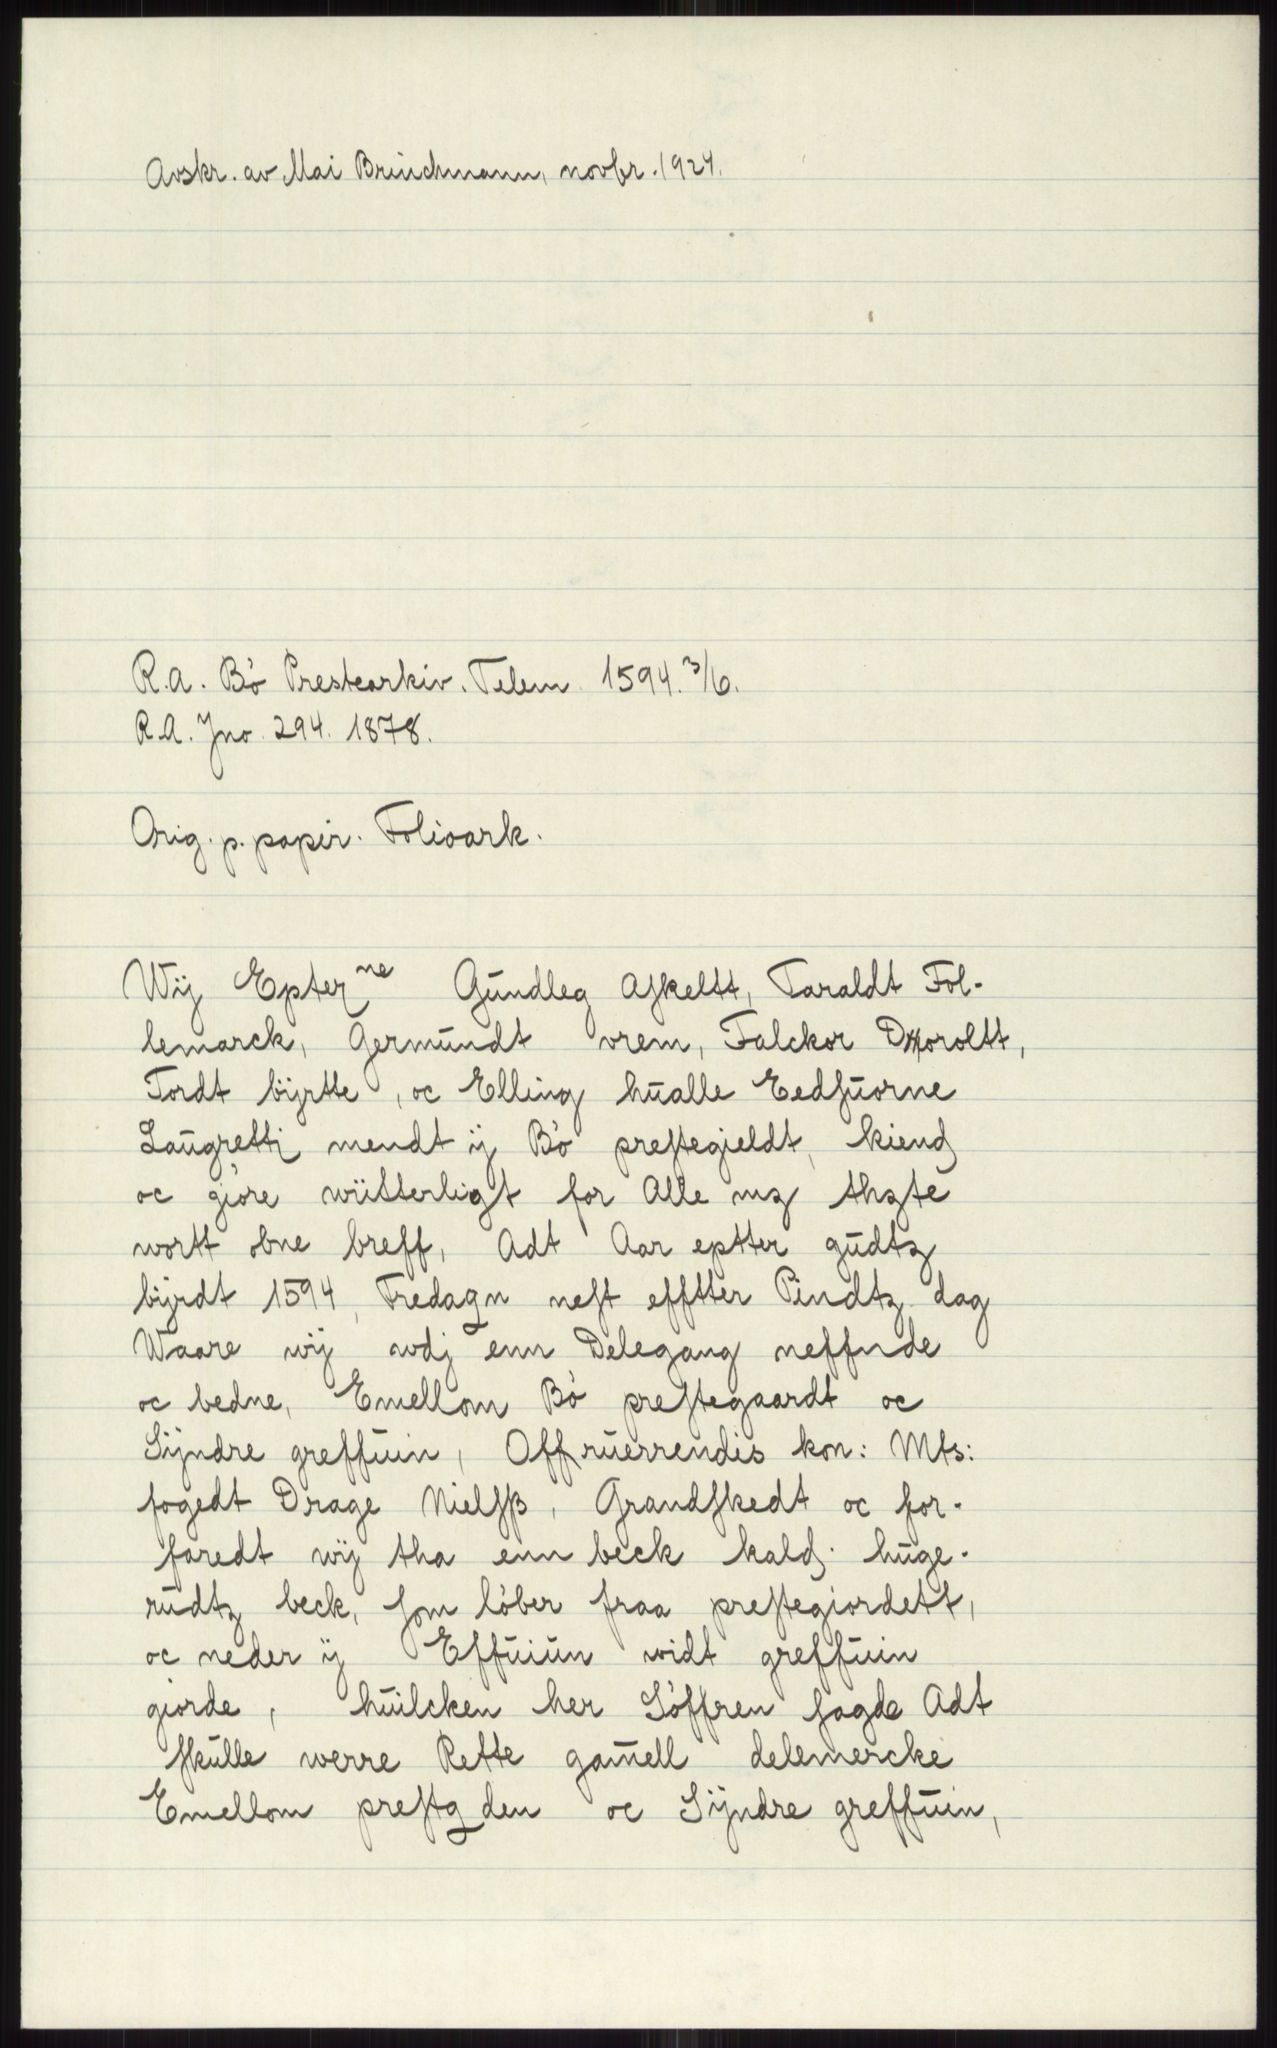 Avskr. av Mai Brinchmann, novbr. 1924.
R.A. Bö Prestearkiv. Telem. 1594. 3/6.
R.A. Jno. 294. 1878.
Orig. p. papir. Folioark.
Wij Epter ne Gŭndleg Aſkeltt, Taraldt Fol-
lemarck, Germŭndt vrem, Falckor Doroltt,
Tordt bijrtte, oc Elling hŭalle Eedſŭorne
Laŭgretti mendt ij Bö preſtegieldt, kiend
oc giöre wiitterligt for Alle mz thzte
wortt obne breff, Adt Aar eptter gŭdtz
bijrdt 1594, Fredagn neſt efftter Pindtz dag
Waare wij wdj enn Delegang neffnde
oc bedne, Emellom Bö preſtegaardt oc
Sijndre greffŭin, Offŭerrendis kon: Mts:
fogedt Drage Nielſſß, Grandſkedt oc for-
faredt wij tha enn beck kald. hŭge-
rŭdtz beck, ſom löber fraa preſtegiordett,
oc neder ij Effŭiŭn widt greffŭin
giorde, hŭilcken her Söffren ſagde Adt
ſkŭlle werre Rette gam̄ell delemercke
Emellom preſtg den oc Sijndre greffŭin,